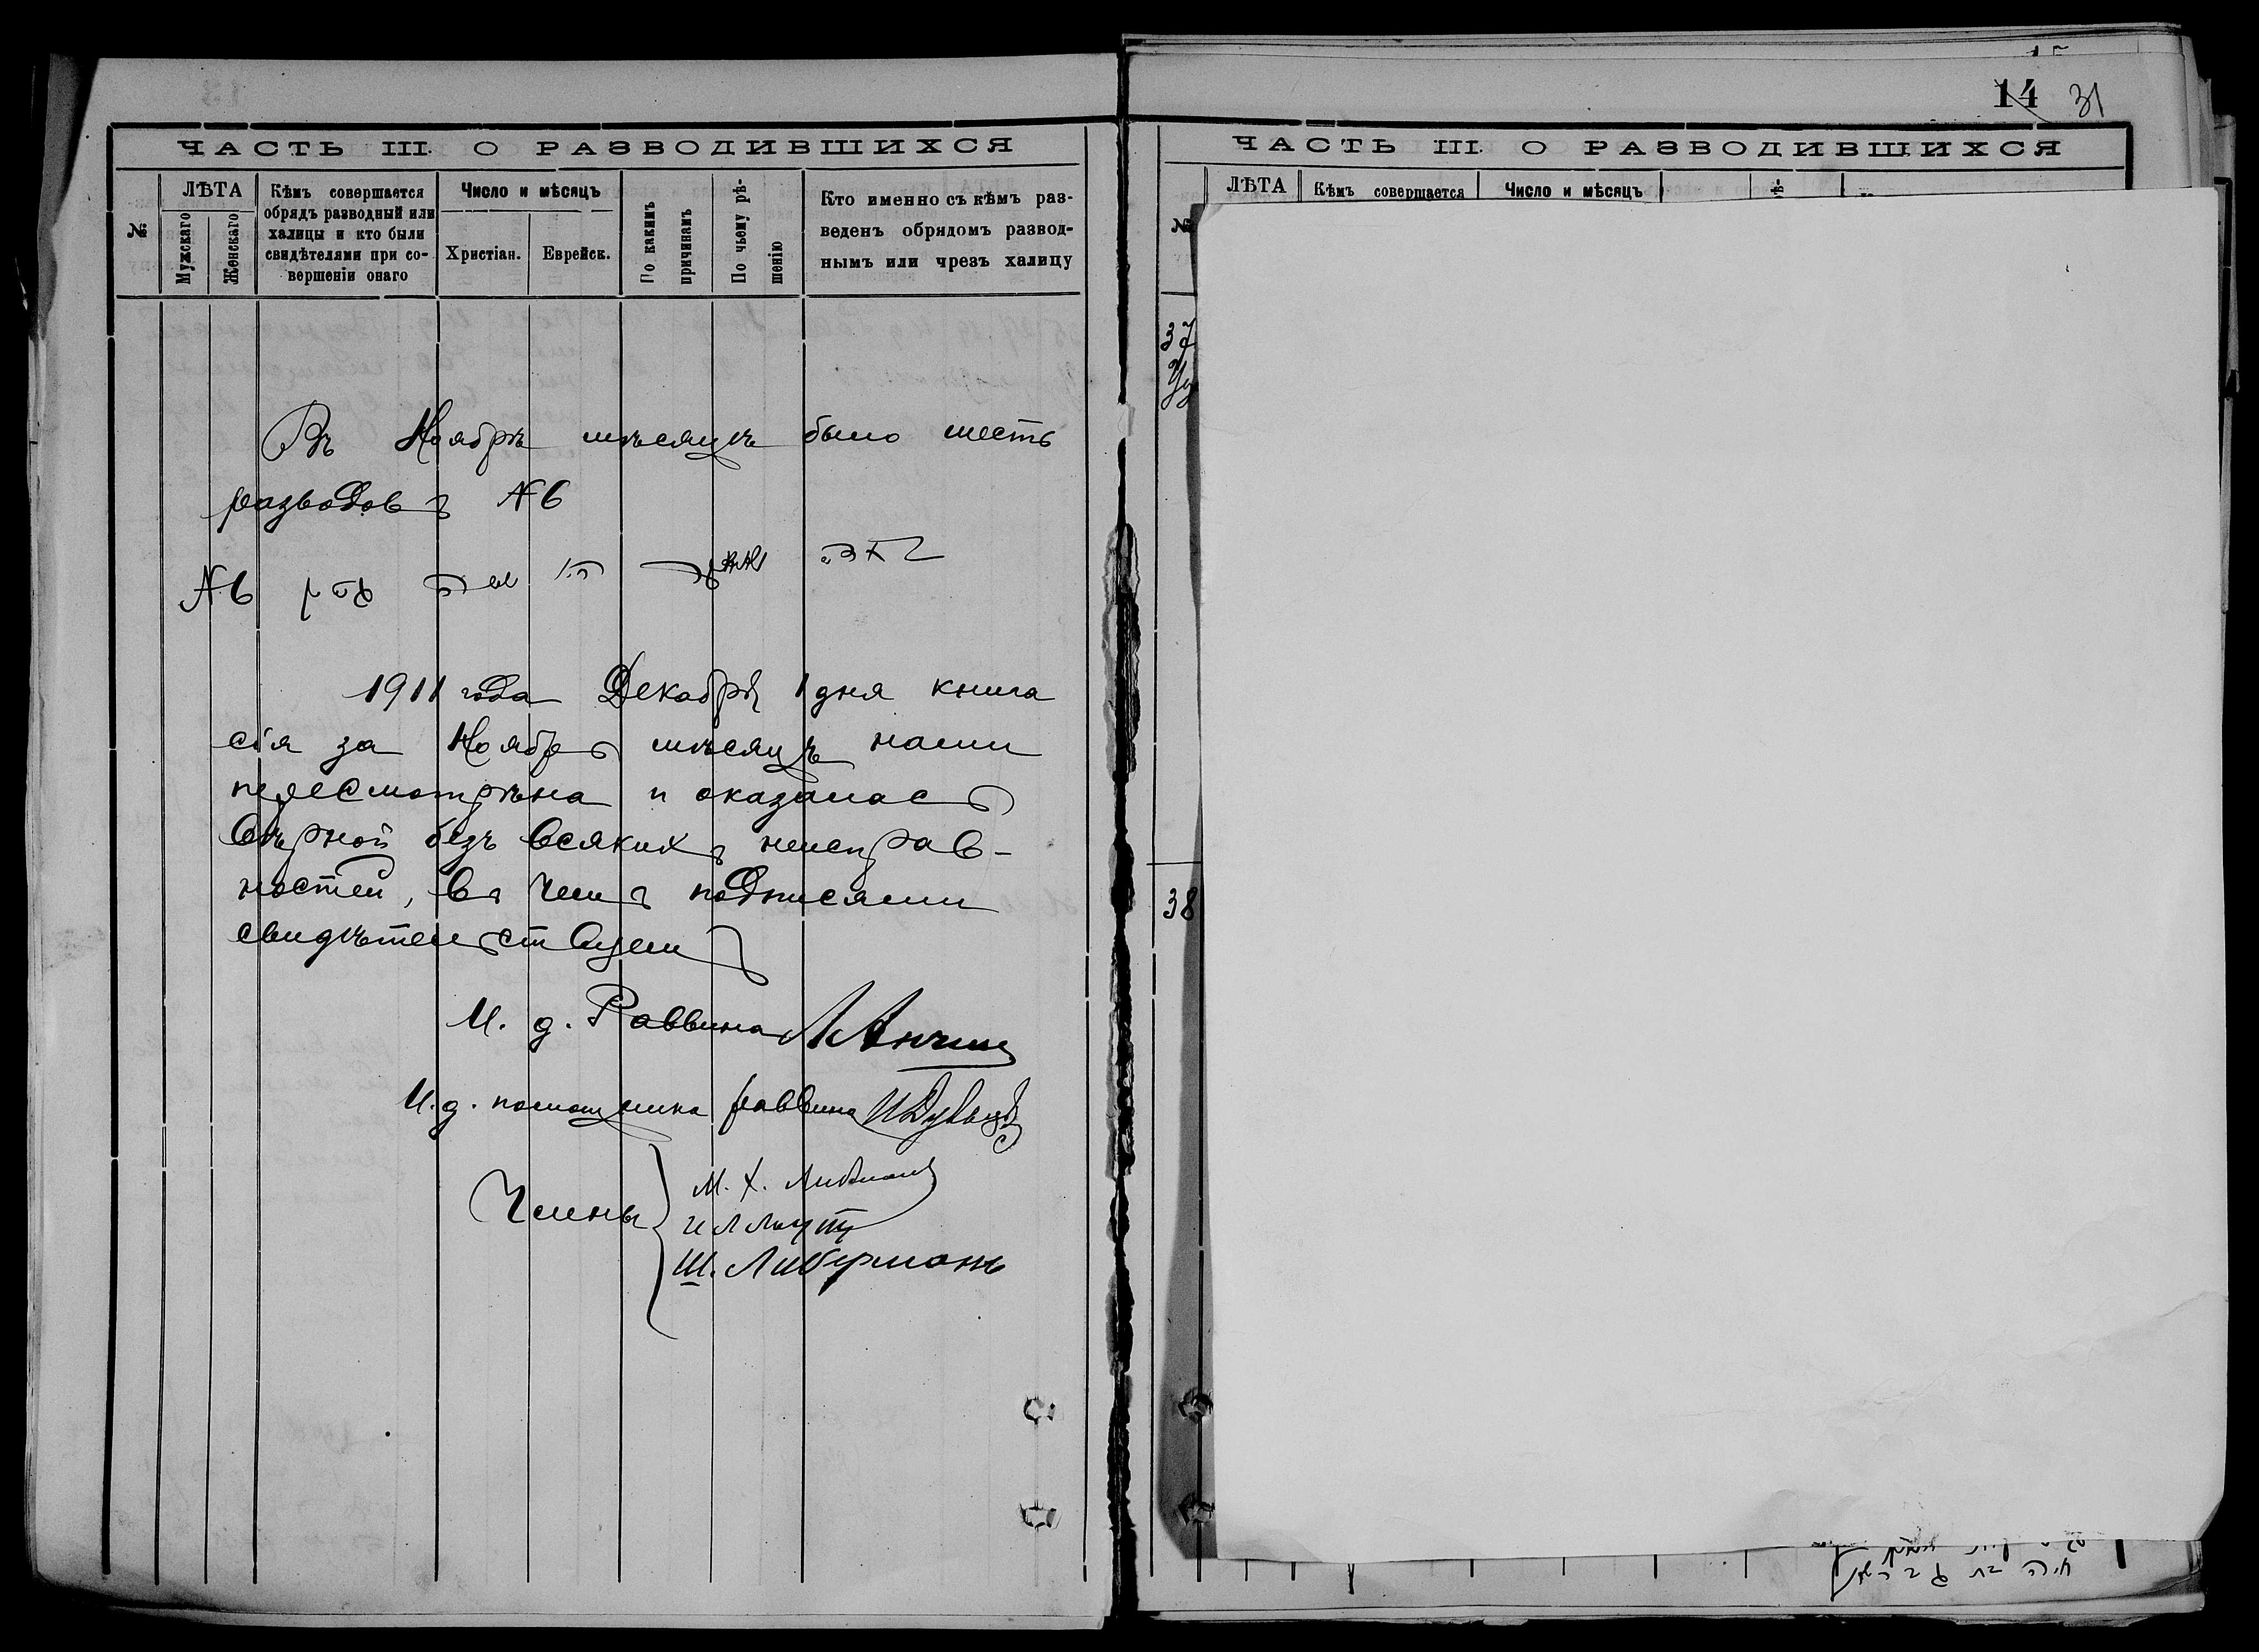 ЧАСТЬ III. О РАЗВОДИВШИХСЯ
№
ЛѢТА
Мужскаго
Женскаго
Кѣмъ совершается
обрядъ разводный или
халицы и кто были
свидѣтелями при со-
вершеніи онаго
Число и мѣсяцъ
Христіан.
Еврейск.
По какимъ
причинамъ
По чьему рѣ-
шенію
Кто именно съ кѣмъ раз-
веденъ обрядомъ развод-
нымъ или чрезъ халицу
Въ Ноябрѣ мѣсяцѣ было шесть
разводовъ № 6
№ 6
1911 года Декабря 1 дня книга
сія за Ноябрь мѣсяцъ нами
пересмотрѣна и оказалась
вѣрной безъ всякихъ неисправ-
ностей, въ чемъ подписями
свидѣтельствуемъ
И. д. Раввина
И. д. помощника раввина
Члены
М. Х.
Ш. Либерманъ
14 31
ЧАСТЬ III. О РАЗВОДИВШИХСЯ
№
ЛѢТА
Кѣмъ совершается
Число и мѣсяцъ
37
38